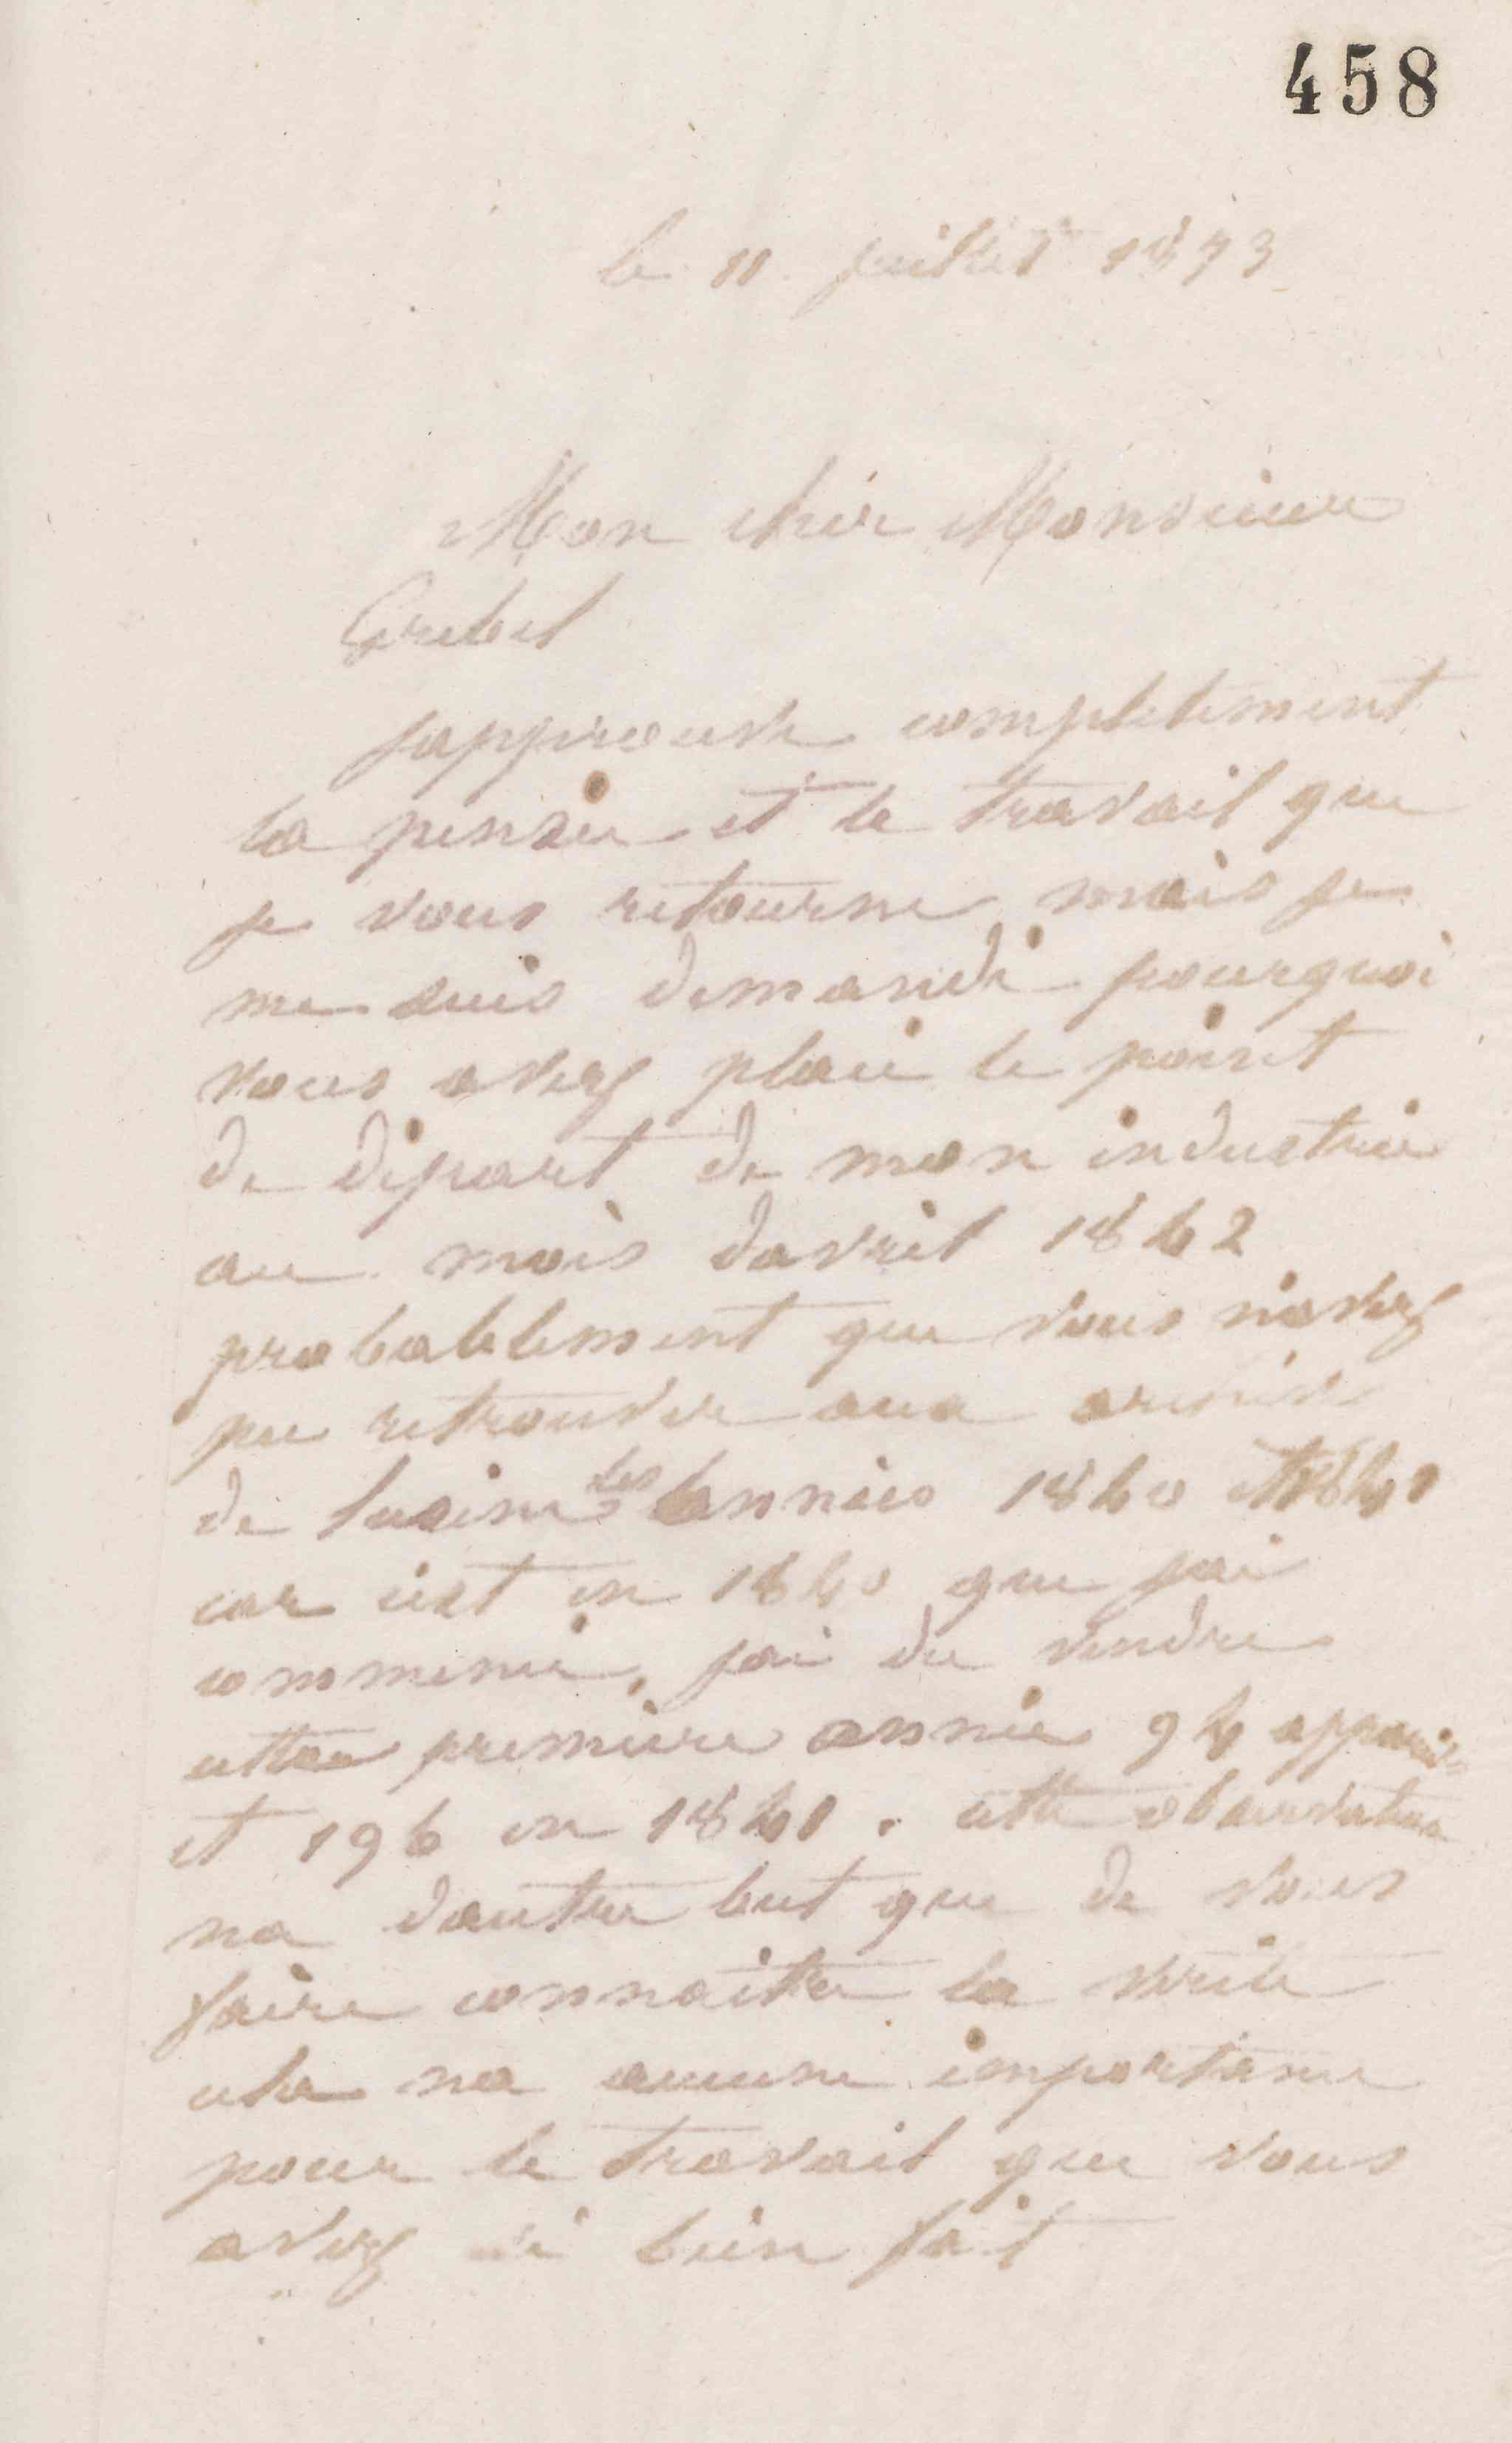 458
le 11 juillet 1873
Mon cher Monsieur
Grebel
japprouve completement
la pensée et le travail que
je vous retourne mais je
me suis demandé pourquoi
vous avez placé le point
de départ de mon industrie
au mois davril 1842
probablement que vous navez
pu retrouver aux
de lusine les années 1840 et 1841
car cest en 1840 que jai
commencé, jai du vendre
cette première année 94
et 196 en 1841. cette observation
na dautre but que de vous
faire connaitre la vérité
cela na aucune importance
pour le travail que vous
avez si bien fait